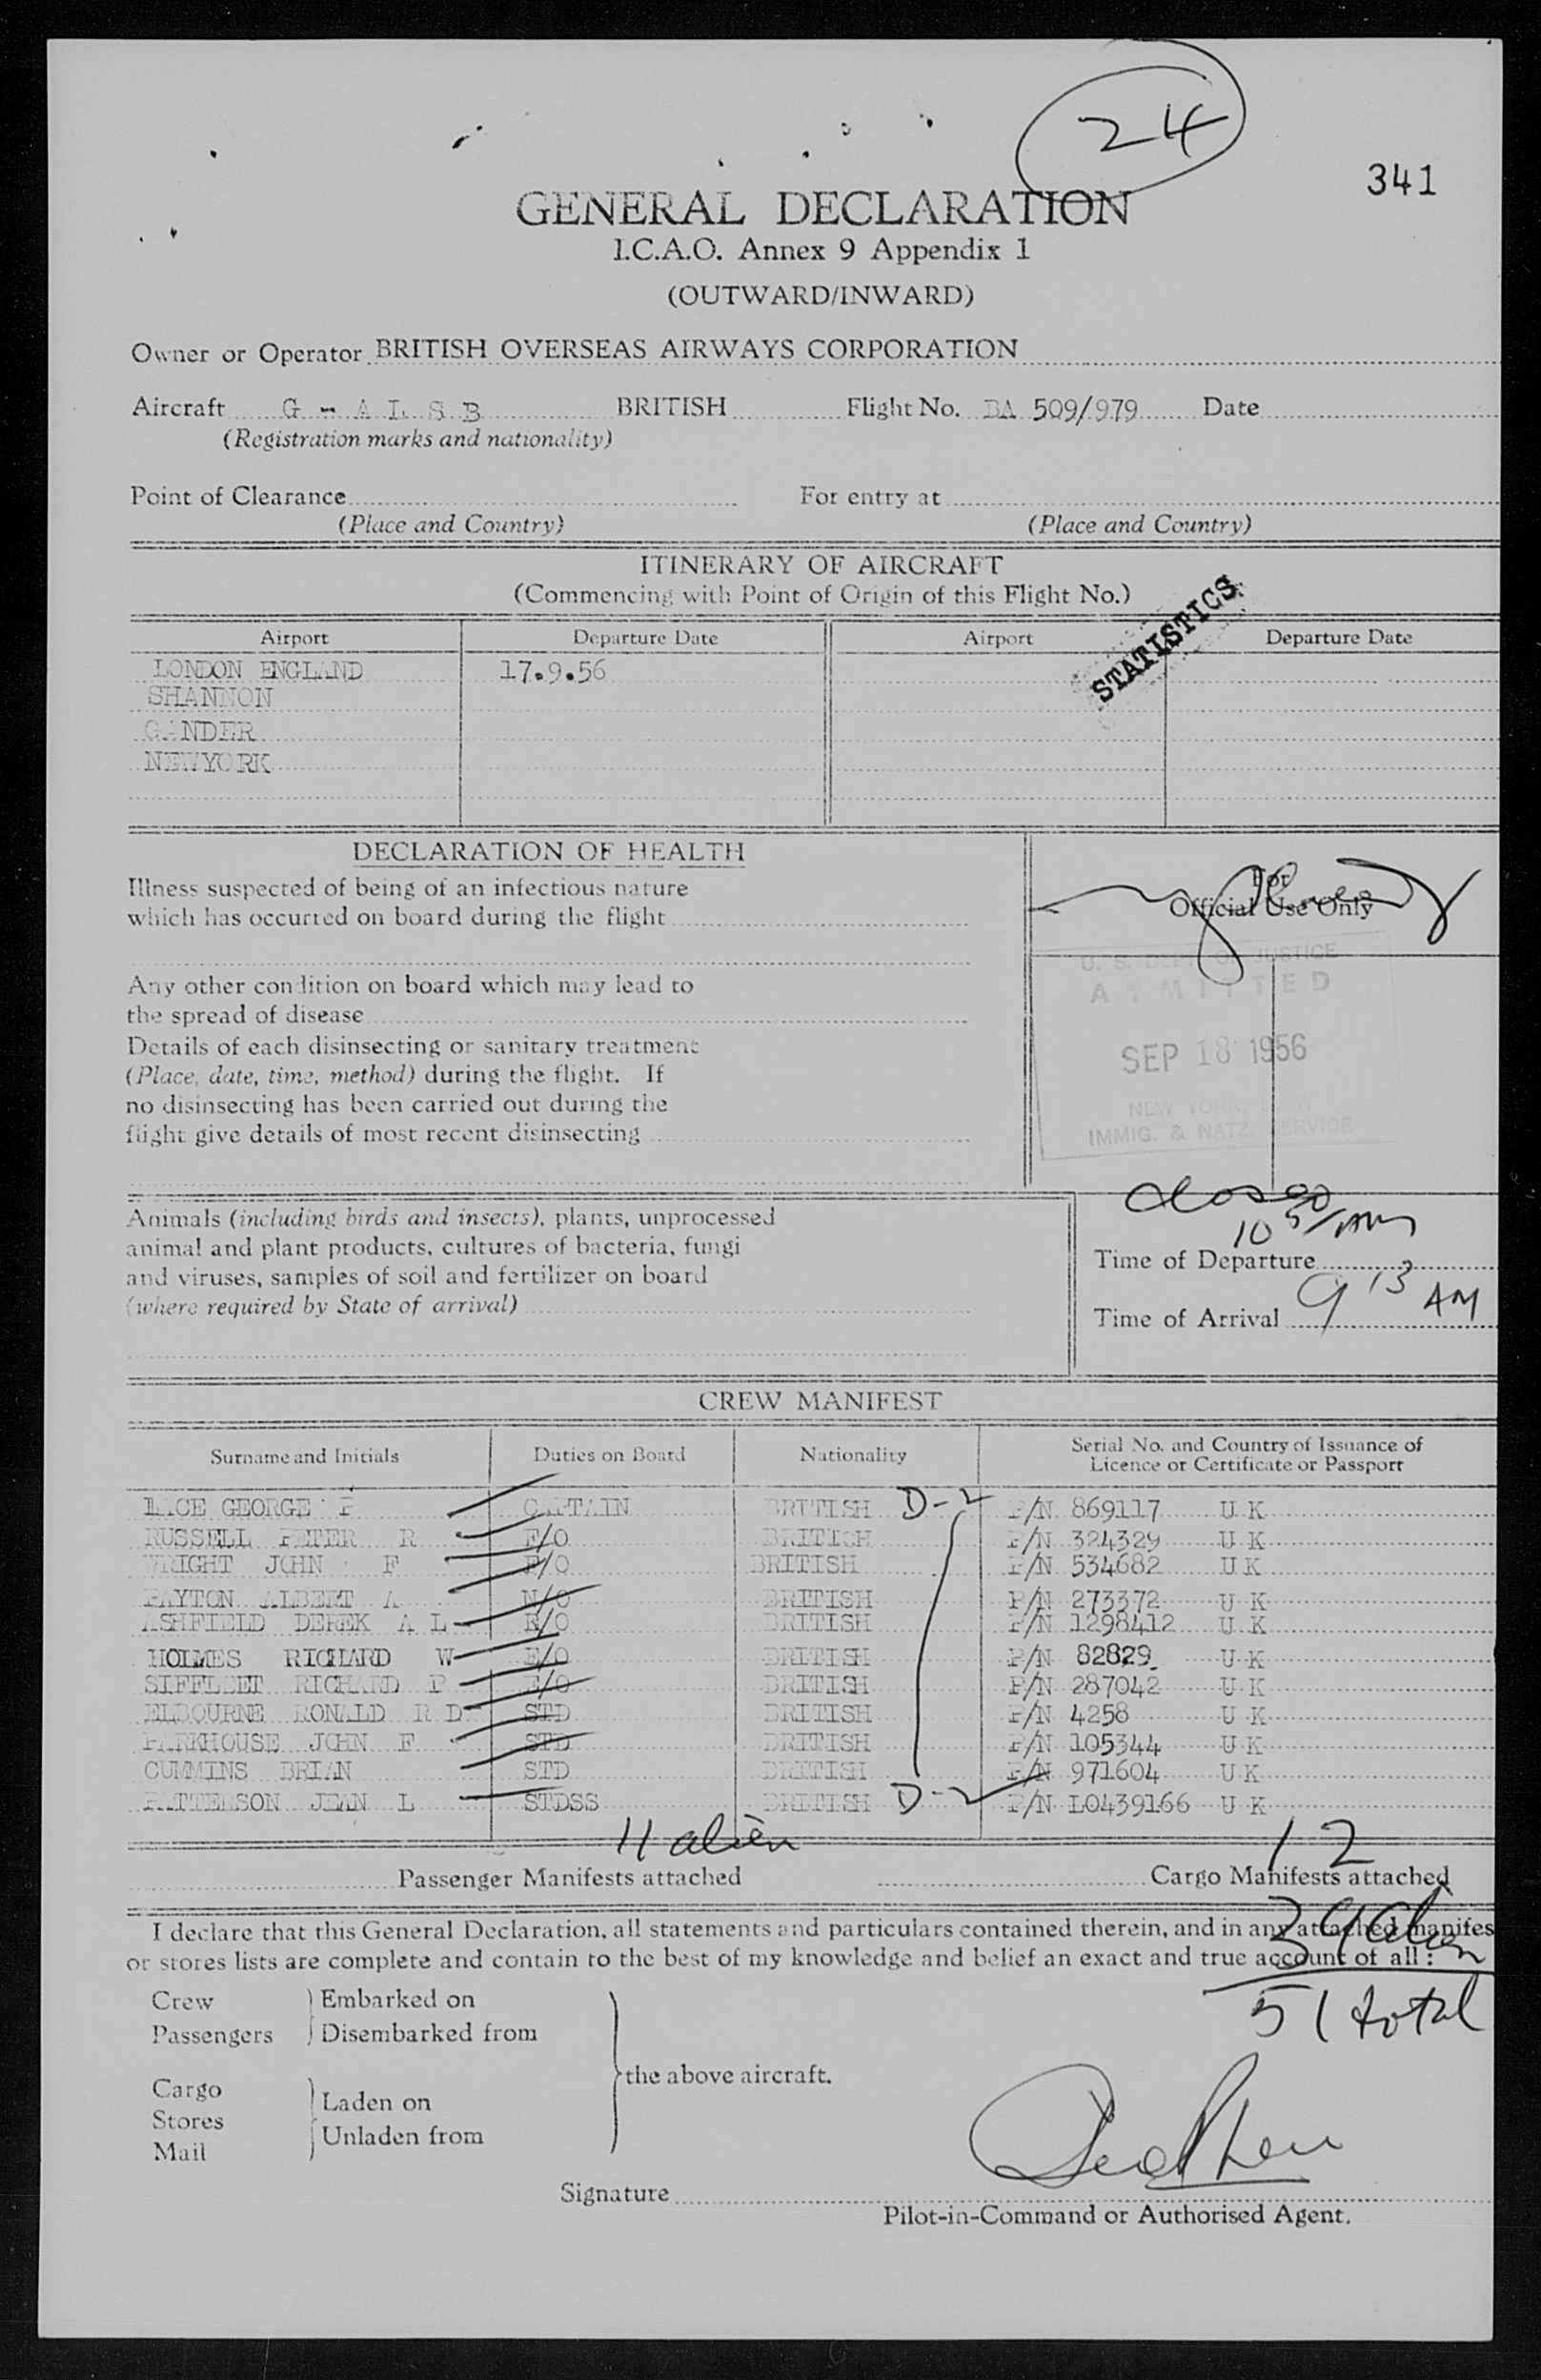 24
341
GENERAL DECLARATION
I.C.A.O. Annex 9 Appendix 1
(OUTWARD/INWARD)
Owner or Operator BRITISH OVERSEAS AIRWAYS CORPORATION
Aircraft G - A L S B BRITISH Flight No. BA 509/979 Date
(Registration marks and nationality)
Point of Clearance For entry at
(Place and Country) (Place and Country)
ITINERARY OF AIRCRAFT
(Commencing with Point of Origin of this Flight No.)
STATISTICS
Airport Departure Date Airport Departure Date
LONDON ENGLAND 17.9.56
SHANNON
GANDER
NEWYORK
DECLARATION OF HEALTH
Illness suspected of being of an infectious nature
which has occurred on board during the flight
For
Official Use Only
Any other condition on board which may lead to
the spread of disease
Details of each disinsecting or sanitary treatment
(Place, date, time, method) during the flight. If
no disinsecting has been carried out during the
flight give details of most recent disinsecting
U. S. DEPT. OF JUSTICE
ADMITTED
SEP 18 1956
NEW YORK,
IMMIG. & NATZ. SERVICE
Animals (including birds and insects), plants, unprocessed
animal and plant products, cultures of bacteria, fungi
and viruses, samples of soil and fertilizer on board
(where required by State of arrival)
10 50 AM
Time of Departure
Time of Arrival 9 13 AM
CREW MANIFEST
Surname and Initials Duties on Board Nationality Serial No. and Country of Issuance of
Licence or Certificate or Passport
GEORGE P CAPTAIN BRITISH D-2 P/N 869117 U K
RUSSELL PETER R F/O BRITISH P/N 324329 U K
WRIGHT JOHN F F/O BRITISH P/N 534682 U K
PAYTON ALBERT A N/O BRITISH P/N 273372 U K
ASHFIELD DEREK A L R/O BRITISH P/N 1298412 U K
HOLMES RICHARD W E/O BRITISH P/N 82829 U K
SIFFLEET RICHARD P E/O BRITISH P/N 287042 U K
ELBOURNE RONALD R D STD BRITISH P/N 4258 U K
PARKHOUSE JOHN F STD BRITISH P/N 105344 U K
CUMMINS BRIAN STD BRITISH P/N 971604 U K
PATTERSON JEAN L STDSS BRITISH D-2 P/N L0439166 U K
11 alien 12
Passenger Manifests attached Cargo Manifests attached
39 alien
I declare that this General Declaration, all statements and particulars contained therein, and in any attached manifes
or stores lists are complete and contain to the best of my knowledge and belief an exact and true account of all :
51 total
Crew Embarked on
Passengers Disembarked from
the above aircraft.
Cargo Laden on
Stores
Mail Unladen from
Signature
Pilot-in-Command or Authorised Agent.